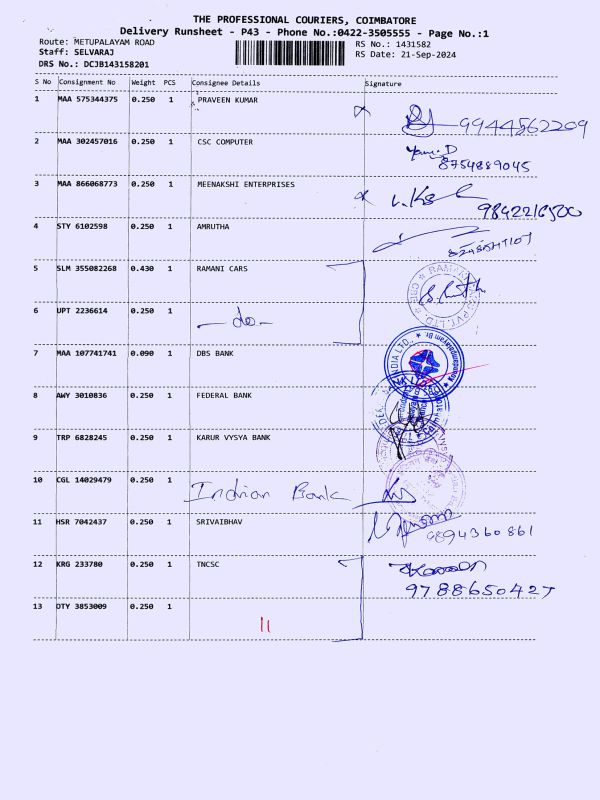 THE PROFESSIONAL COURIERS, COIMBATORE
Delivery Runsheet - P43 - Phone No.:0422-3505555 - Page No.:1
Route: METUPALAYAM ROAD
RS No.: 1431582
Staff: SELVARAJ
RS Date: 21-Sep-2024
DRS No.: DCJB143158201
S No Consignment No Weight PCS Consignee Details Signature
1 MAA 575344375 0.250 1 PRAVEEN KUMAR
9944562209
2 MAA 302457016 0.250 1 CSC COMPUTER
8754889045
3 MAA 866068773 0.250 1 MEENAKSHI ENTERPRISES
9842216500
4 STY 6102598 0.250 1 AMRUTHA
5 SLM 355082268 0.430 1 RAMANI CARS
6 UPT 2236614 0.250 1 -do-
7 MAA 107741741 0.090 1 DBS BANK
8 AWY 3010836 0.250 1 FEDERAL BANK
9 TRP 6828245 0.250 1 KARUR VYSYA BANK
10 CGL 14029479 0.250 1 Indian Bank
11 HSR 7042437 0.250 1 SRIVAIBHAV
9894360861
12 KRG 233780 0.250 1 TNCSC
9788650427
13 OTY 3853009 0.250 1
11